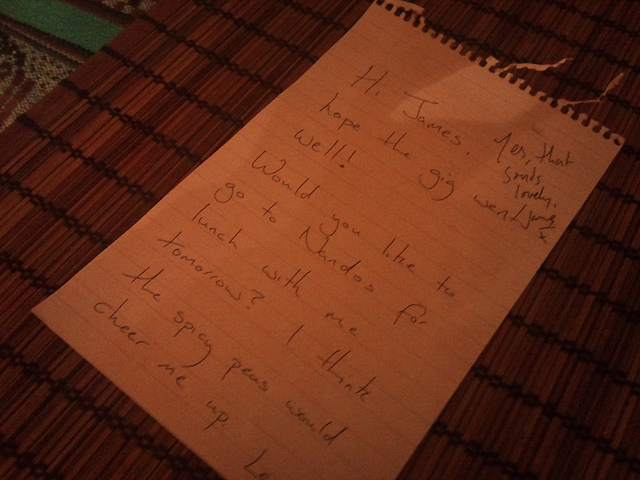 Hi James,
hope the gig went
well!
Would you like to
go to Nandos for
lunch with me
tomorrow? I think
the spicy peas would
cheer me up
Yes, that
sounds
lovely.
x